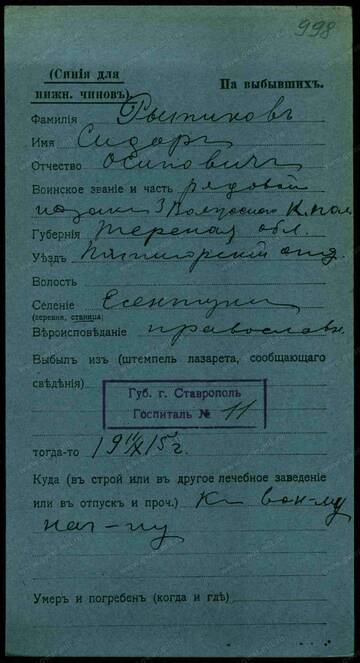 998
(Синія для
нижн. чиновъ)
На выбывшихъ.
Фамилія Рыжиковъ
Имя Сидоръ
Отчество Осиповичъ
Воинское званіе и часть рядовой
казакъ 3 Волгскаго К. пол
Губернія Терская обл.
Уѣздъ Пятигорскій отд.
Волость
Селеніе Есентуки
(деревня, станица)
Вѣроисповѣданіе православн.
Выбылъ изъ (штемпель лазарета, сообщающаго
свѣдѣнія)
Губ. г. Ставрополь
Госпиталь № 11
тогда-то 19 IX 15 г.
Куда (въ строй или въ другое лечебное заведеніе
или въ отпускъ и проч.) Къ воин-му
нач-ку
Умеръ и погребенъ (когда и гдѣ)